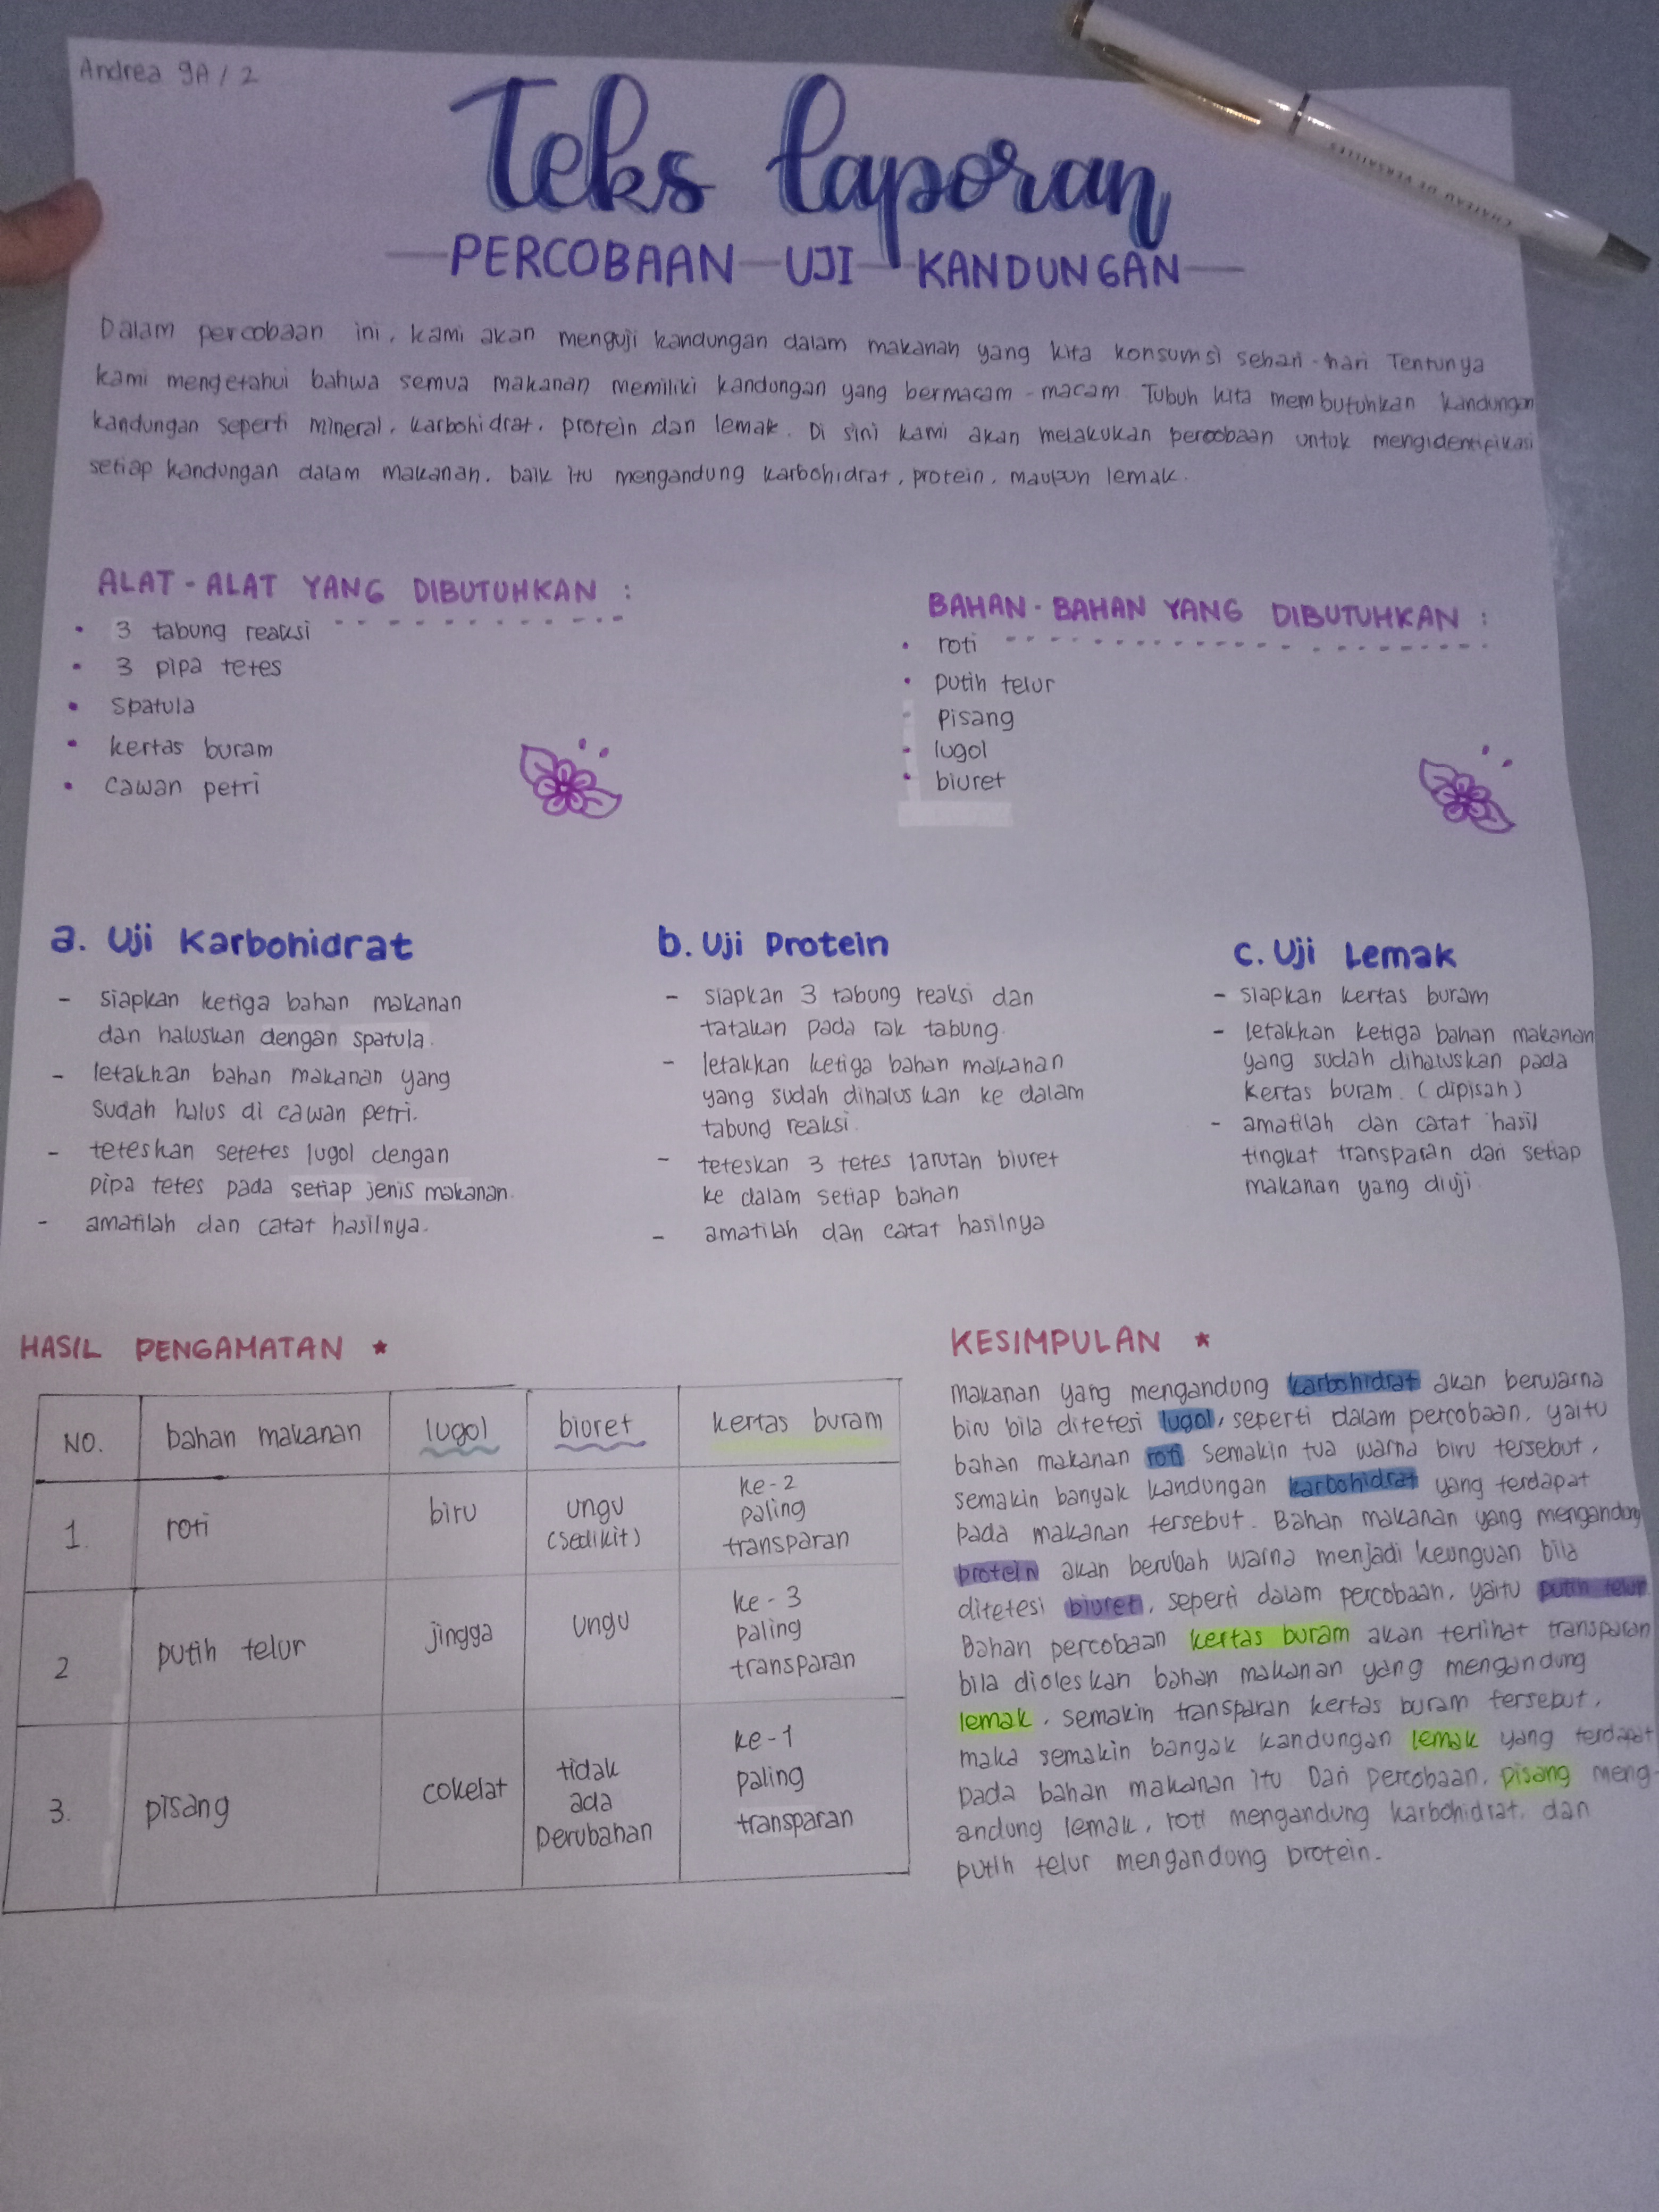 Andrea 9A / 2
Teks laporan
PERCOBAAN UJI KANDUNGAN
CHATEAU DE VERSAILLES
Dalam percobaan ini, kami akan menguji kandungan dalam makanan yang kita konsumsi sehari-hari Tentunya
kami mengetahui bahwa semua makanan memiliki kandungan yang bermacam-macam Tubuh kita membutuhkan kandungan
kandungan seperti mineral, karbohidrat, protein dan lemak. Di sini kami akan melakukan percobaan untuk mengidentifikasi
setiap kandungan dalam makanan, baik itu mengandung karbohidrat, protein, maupun lemak.
ALAT-ALAT YANG DIBUTUHKAN :
• 3 tabung reaksi
• 3 pipa tetes
• spatula
• kertas buram
• cawan petri
BAHAN-BAHAN YANG DIBUTUHKAN :
• roti
• putih telur
• pisang
• lugol
• biuret
a. Uji Karbohidrat
- siapkan ketiga bahan makanan
dan haluskan dengan spatula.
- letakkan bahan makanan yang
sudah halus di cawan petri.
- teteskan setetes lugol dengan
pipa tetes pada setiap jenis makanan.
- amatilah dan catat hasilnya.
b. Uji Protein
- siapkan 3 tabung reaksi dan
tatakan pada rak tabung.
- letakkan ketiga bahan makanan
yang sudah dihaluskan ke dalam
tabung reaksi.
- teteskan 3 tetes larutan biuret
ke dalam setiap bahan
- amatilah dan catat hasilnya
c. Uji Lemak
- siapkan kertas buram
- letakkan ketiga bahan makanan
yang sudah dihaluskan pada
kertas buram. (dipisah)
- amatilah dan catat hasil
tingkat transparan dari setiap
makanan yang diuji.
HASIL PENGAMATAN ★
NO. bahan makanan lugol biuret kertas buram
1. roti biru ungu (sedikit) ke-2 paling transparan
2 putih telur jingga ungu ke-3 paling transparan
3. pisang cokelat tidak ada perubahan ke-1 paling transparan
KESIMPULAN ★
makanan yang mengandung karbohidrat akan berwarna
biru bila ditetesi lugol, seperti dalam percobaan, yaitu
bahan makanan roti. Semakin tua warna biru tersebut,
semakin banyak kandungan karbohidrat yang terdapat
pada makanan tersebut. Bahan makanan yang mengandung
protein akan berubah warna menjadi keunguan bila
ditetesi biuret, seperti dalam percobaan, yaitu putih telur.
Bahan percobaan kertas buram akan terlihat transparan
bila dioleskan bahan makanan yang mengandung
lemak, semakin transparan kertas buram tersebut,
maka semakin banyak kandungan lemak yang terdapat
pada bahan makanan itu Dari percobaan, pisang meng-
andung lemak, roti mengandung karbohidrat, dan
putih telur mengandung protein.